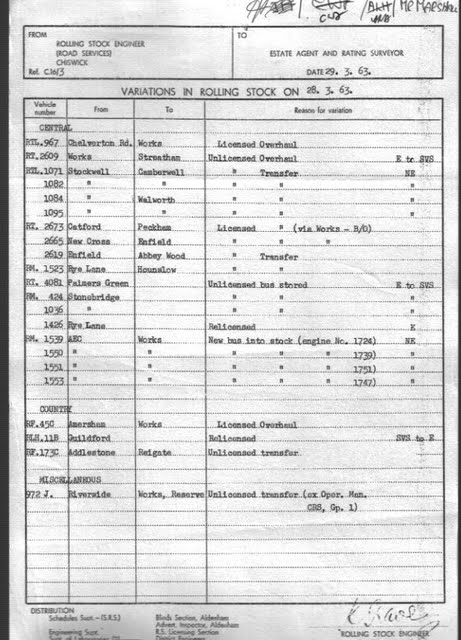 / MR MARSHALL
FROM
ROLLING STOCK ENGINEER
(ROAD SERVICES)
CHISWICK
Ref. C.16/3
TO
ESTATE AGENT AND RATING SURVEYOR
DATE 29. 3. 63.
VARIATIONS IN ROLLING STOCK ON 28. 3. 63.
Vehicle number From To Reason for variation
CENTRAL
RTL.967 Chelverton Rd. Works Licensed Overhaul
RT.2609 Works Streatham Unlicensed Overhaul E to SVS
RTL.1071 Stockwell Camberwell " Transfer NE
1082 " " " "
1084 " Walworth " "
1095 " " " "
RT. 2673 Catford Peckham Licensed " (via Works - B/O)
2665 New Cross Enfield " " "
2619 Enfield Abbey Wood " Transfer
RM. 1523 Rye Lane Hounslow " "
RT. 4081 Palmers Green Unlicensed bus stored E to SVS
RM. 424 Stonebridge " " "
1036 " " " "
1426 Rye Lane Relicensed E
RM. 1539 AEC Works New bus into stock (engine No. 1724) NE
1550 " " " " 1739) "
1551 " " " " 1751) "
1553 " " " " 1747) "
COUNTRY
RF.45C Amersham Works Licensed Overhaul
RLH.11B Guildford Relicensed SVS to E
RF.173C Addlestone Reigate Unlicensed transfer
MISCELLANEOUS
972 J. Riverside Works, Reserve Unlicensed transfer (ex Oper. Man.
CRS, Gp. 1)
DISTRIBUTION
Schedules Supt.-(S.R.S.) Blinds Section, Aldenham
Advert. Inspector, Aldenham
Engineering Supt. R.S. Licensing Section
ROLLING STOCK ENGINEER